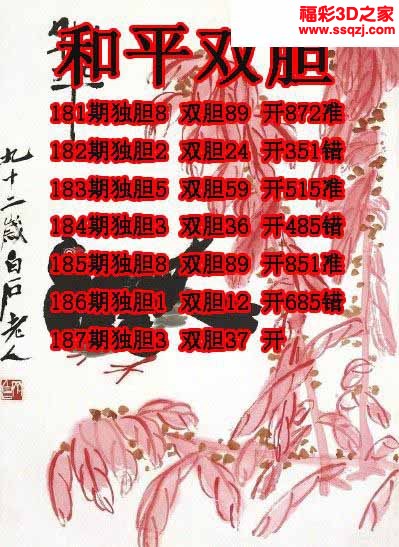 福彩3D之家
www.ssqzj.com
和平双胆
181期独胆8 双胆89 开872准
182期独胆2 双胆24 开351错
183期独胆5 双胆59 开515准
184期独胆3 双胆36 开485错
185期独胆8 双胆89 开851准
186期独胆1 双胆12 开685错
187期独胆3 双胆37 开
九十二岁白石老人